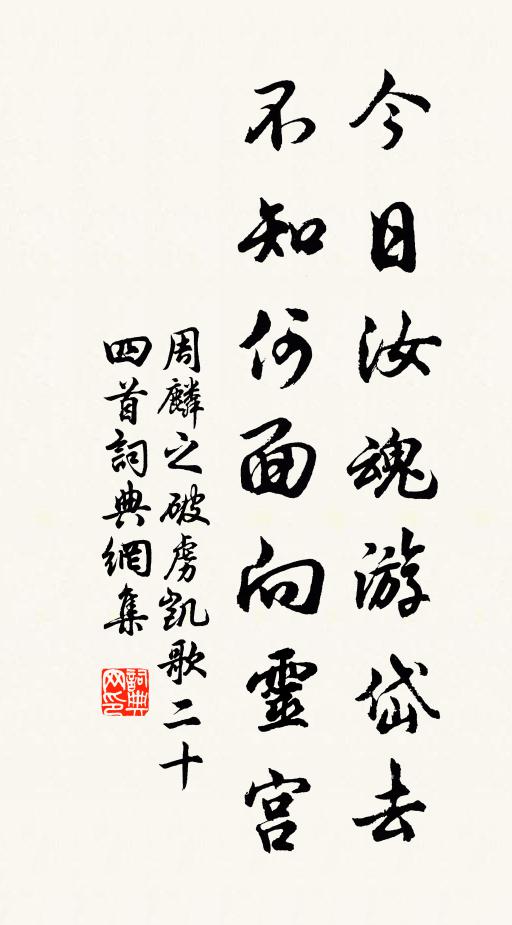 今日汝魂游岱去
不知何面向靈宫
周麟之破虜凱歌二十
四首詞典網集
詞典网印